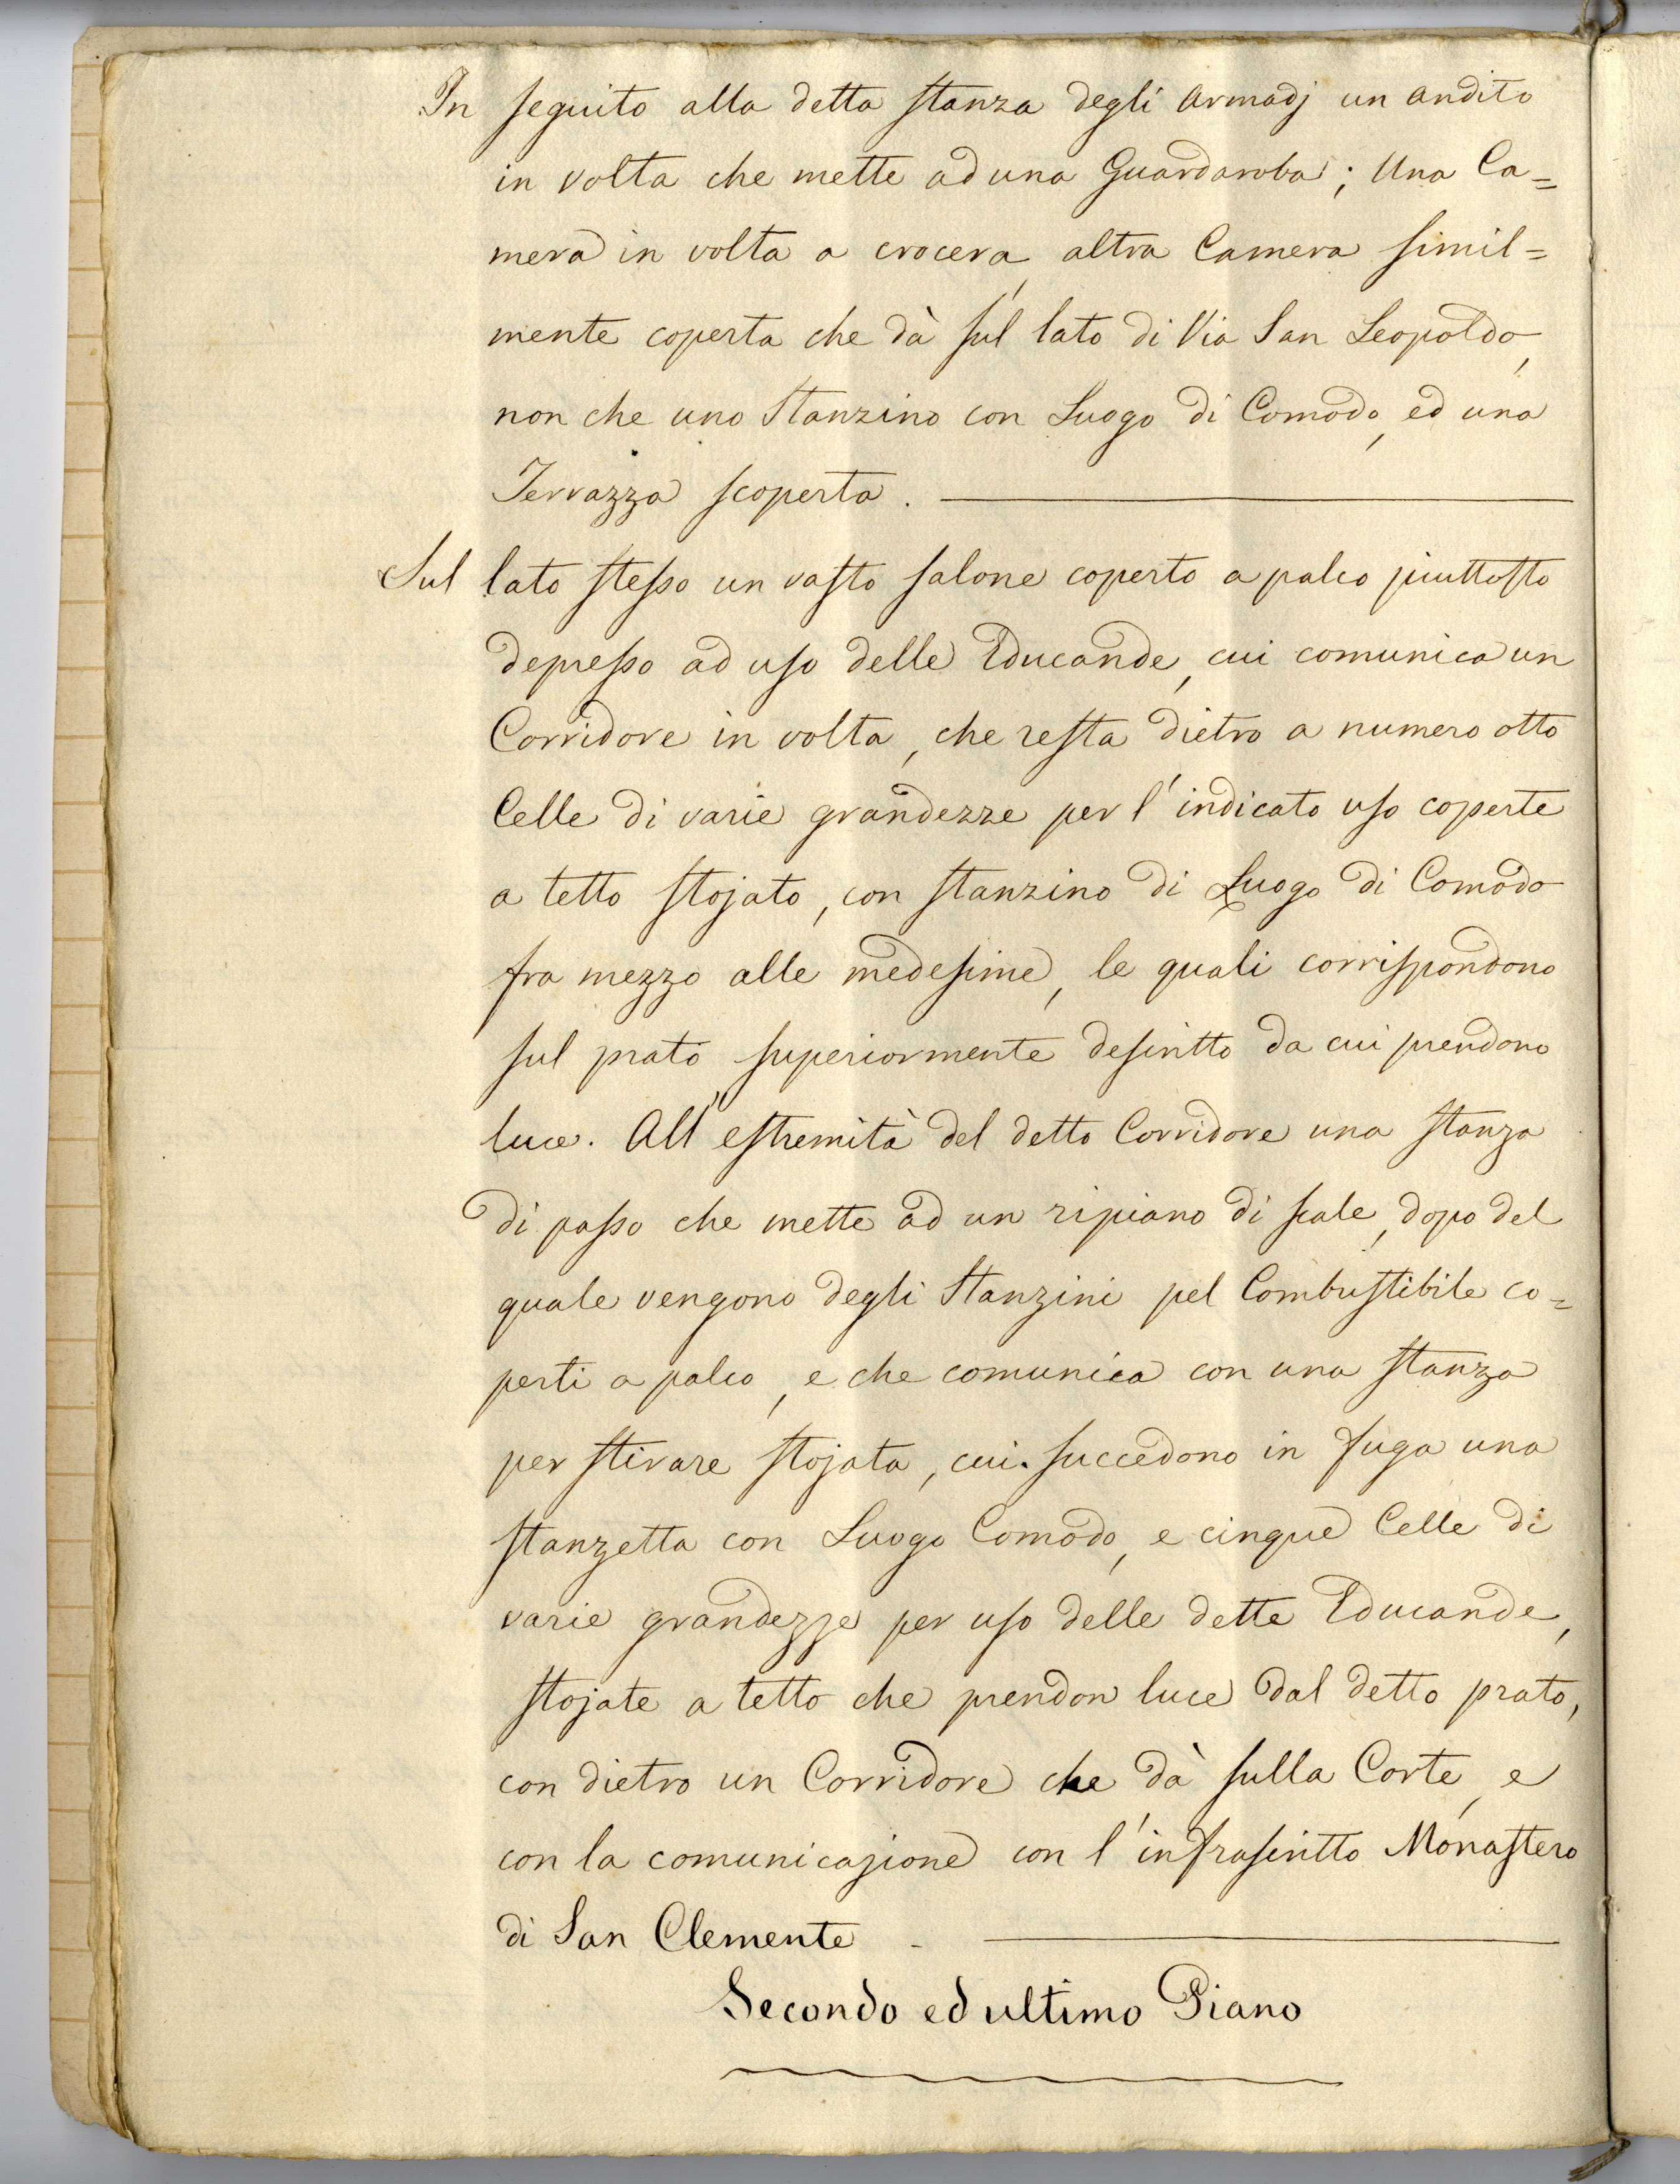 In seguito alla detta stanza degli Armadj un andito
in volta che mette ad una Guardaroba; Una Ca=
mera in volta a crocera, altra Camera simil=
mente coperta che dà sul lato di Via San Leopoldo,
non che uno Stanzino con Luogo di Comodo, ed una
Terrazza scoperta.
Sul lato stesso un vasto salone coperto a palco piuttosto
depresso ad uso delle Educande, cui comunica un
Corridore in volta, che resta dietro a numero otto
Celle di varie grandezze per l'indicato uso coperte
a tetto stojato, con stanzino di Luogo di Comodo
fra mezzo alle medesime, le quali corrispondono
sul prato superiormente descritto da cui prendono
luce. All'estremità del detto Corridore una stanza
di passo che mette ad un ripiano di scale, dopo del
quale vengono degli Stanzini pel Combustibile co=
perti a palco, e che comunica con una stanza
per stirare stojata, cui succedono in fuga una
stanzetta con Luogo Comodo, e cinque Celle di
varie grandezze per uso delle dette Educande,
stojate a tetto che prendon luce dal detto prato,
con dietro un Corridore che dà sulla Corte, e
con la comunicazione con l'infrascritto Monastero
di San Clemente.
Secondo ed ultimo Piano